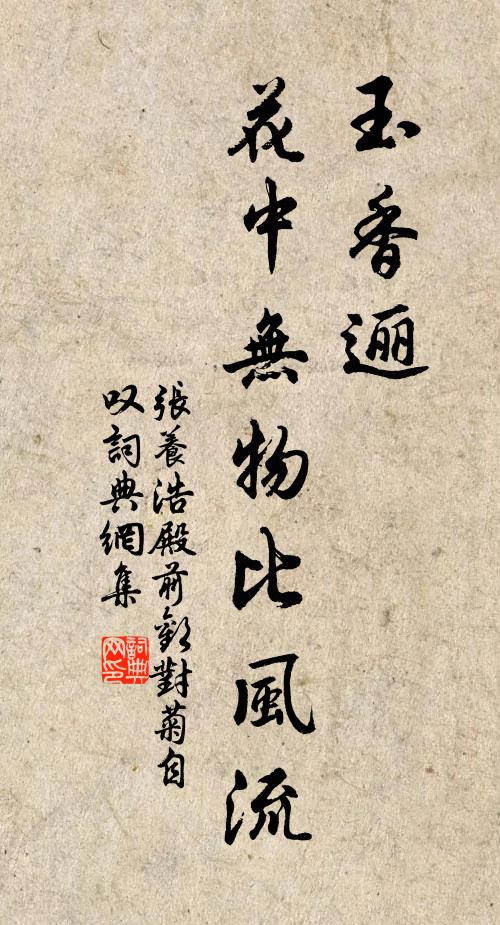 玉香逦
花中無物比風流
張養浩殿前歡對菊自
叹詞典網集
詞典
网印